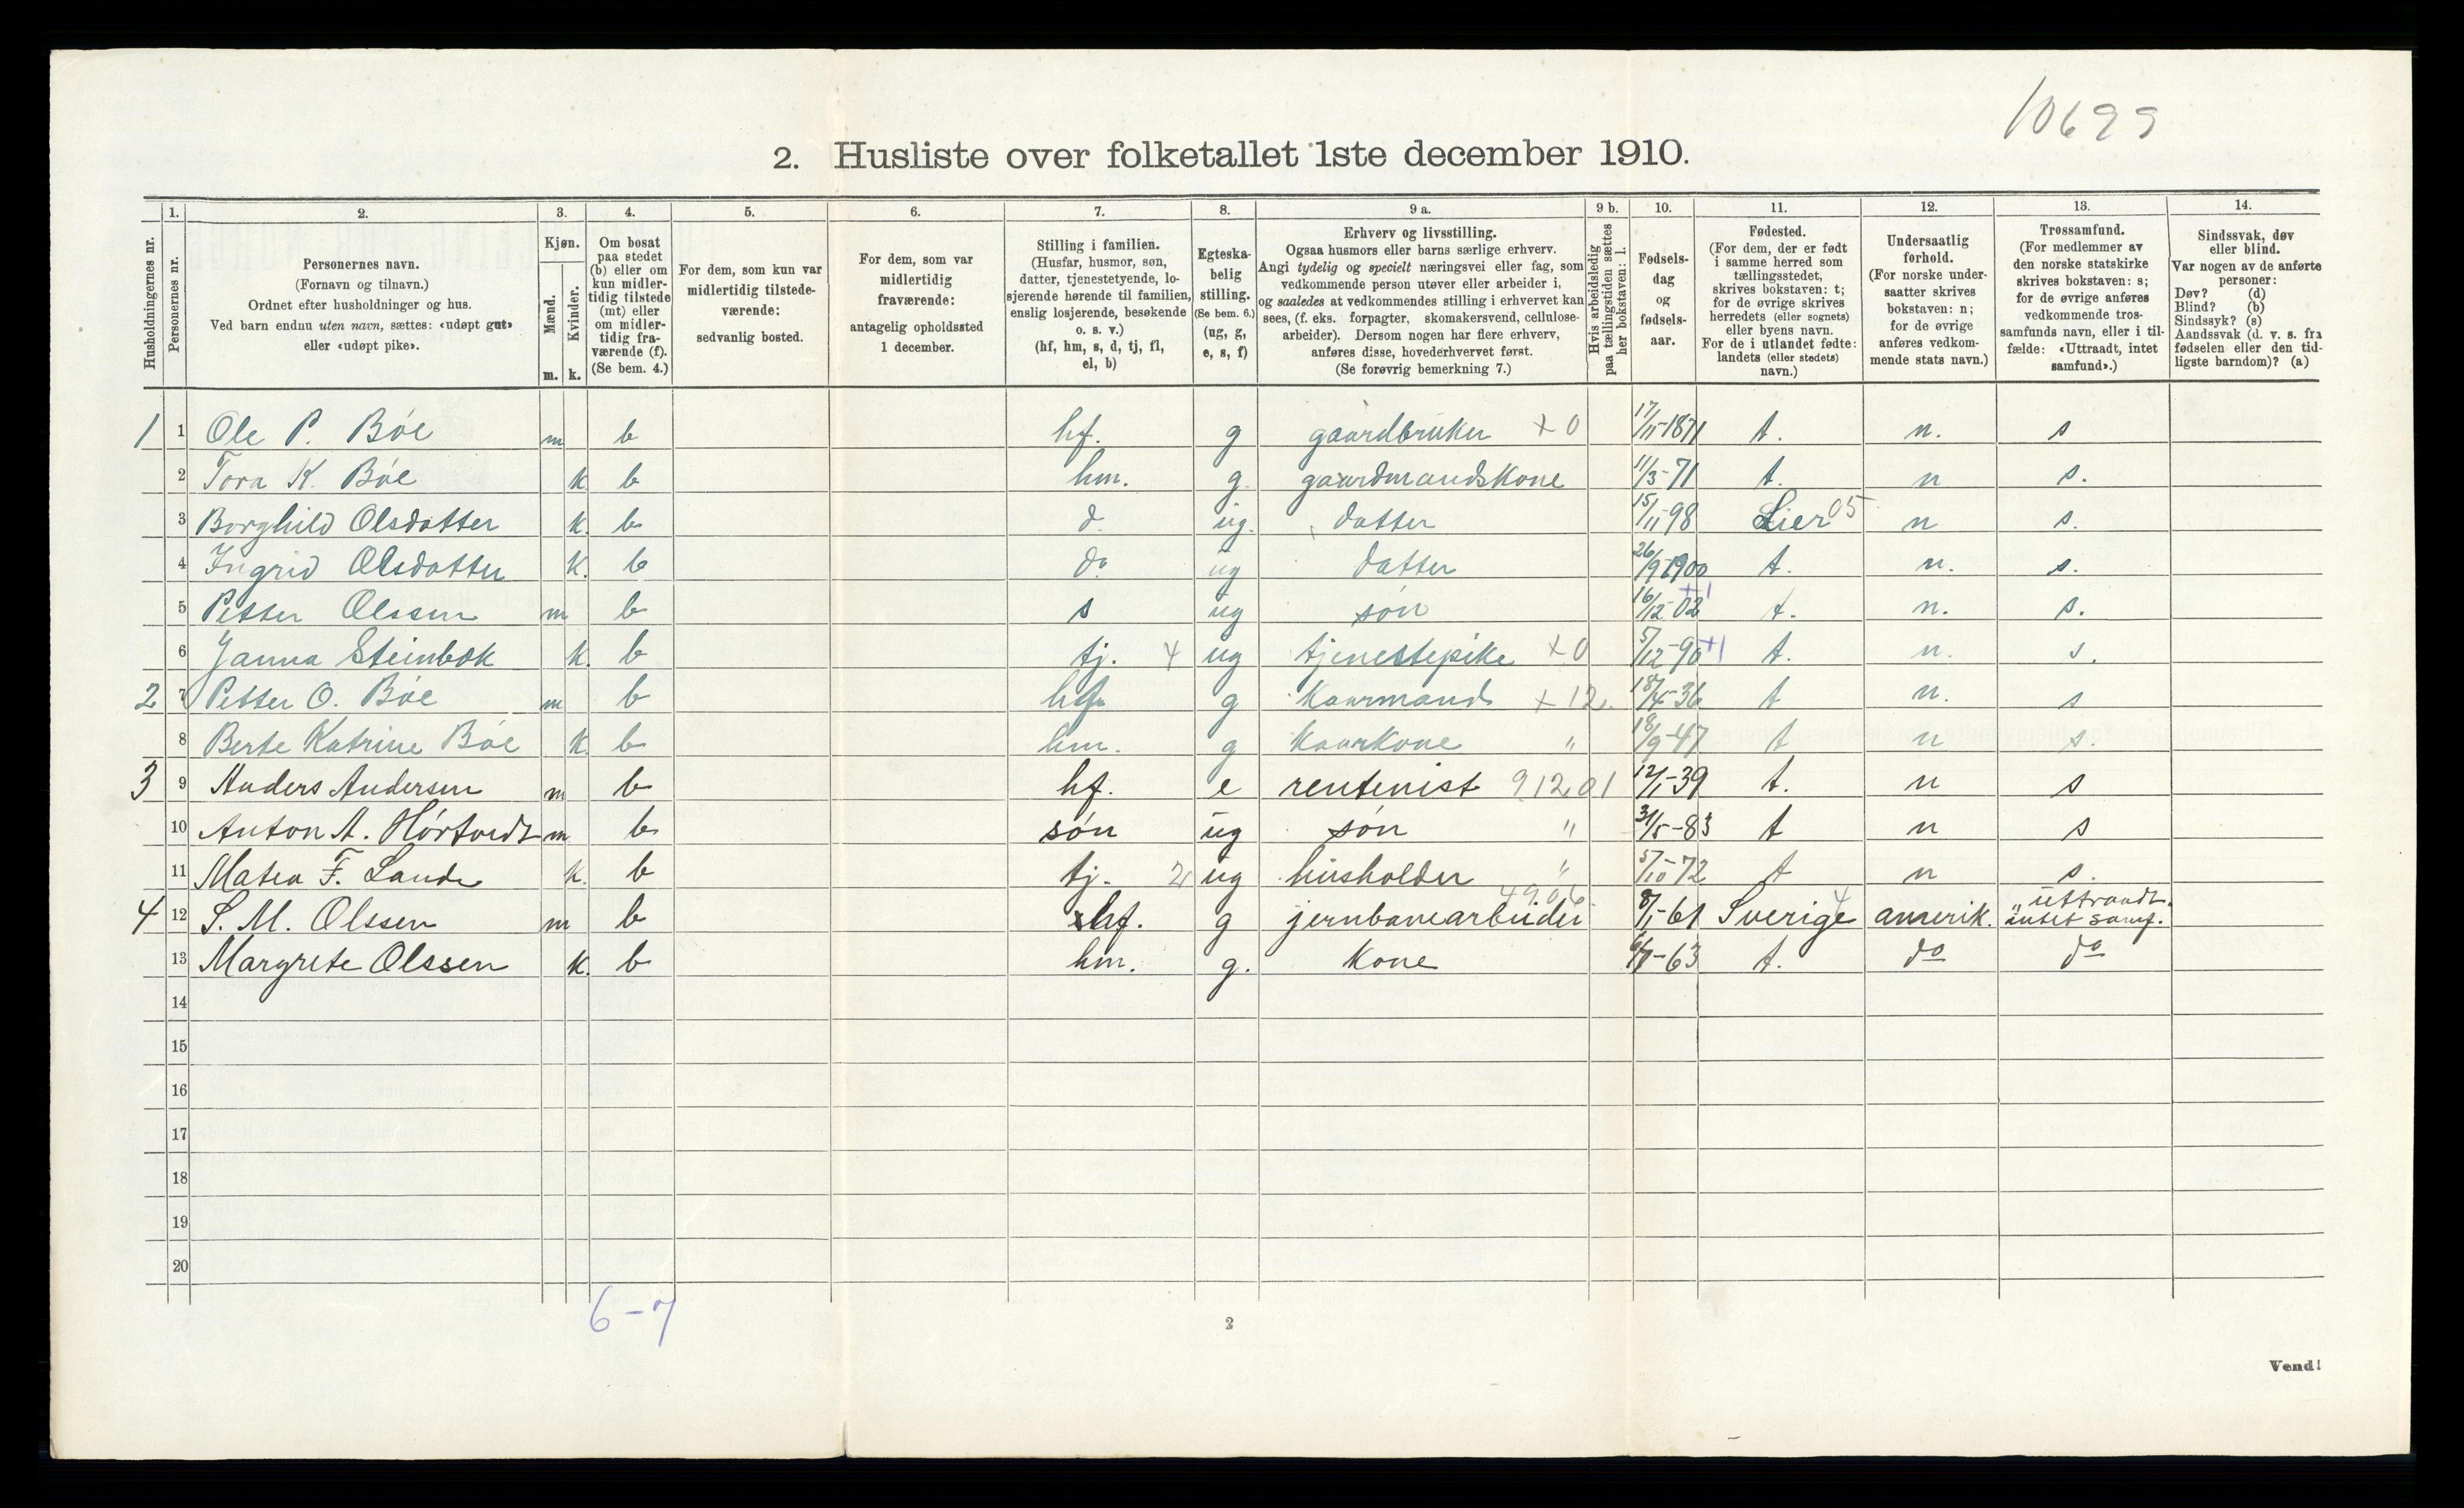 10699
2. Husliste over folketallet 1ste december 1910.
Husholdningernes nr.
1.
Personernes nr.
2.
Personernes navn.
(Fornavn og tilnavn.)
Ordnet efter husholdninger og hus.
Ved barn endnu uten navn, sættes: «udøpt gut»
eller «udøpt pike».
3.
Kjøn.
Mænd.
Kvinder.
m. k.
4.
Om bosat
paa stedet
(b) eller om
kun midler-
tidig tilstede
(mt) eller
om midler-
tidig fra-
værende (f).
(Se bem. 4.)
5.
For dem, som kun var
midlertidig tilstede-
værende:
sedvanlig bosted.
6.
For dem, som var
midlertidig
fraværende:
antagelig opholdssted
1 december.
7.
Stilling i familien.
(Husfar, husmor, søn,
datter, tjenestetyende, lo-
sjerende hørende til familien,
enslig losjerende, besøkende
o. s. v.)
(hf, hm, s, d, tj, fl,
el, b)
8.
Egteska-
belig
stilling.
(Se bem. 6.)
(ug, g,
e, s, f)
9 a.
Erhverv og livsstilling.
Ogsaa husmors eller barns særlige erhverv.
Angi tydelig og specielt næringsvei eller fag, som
vedkommende person utøver eller arbeider i,
og saaledes at vedkommendes stilling i erhvervet kan
sees, (f. eks. forpagter, skomakersvend, cellulose-
arbeider). Dersom nogen har flere erhverv,
anføres disse, hovederhvervet først.
(Se forøvrig bemerkning 7.)
9 b.
Hvis arbeidsledig
paa tællingstiden sættes
her bokstaven: l.
10.
Fødsels-
dag
og
fødsels-
aar.
11.
Fødested.
(For dem, der er født
i samme herred som
tællingsstedet,
skrives bokstaven: t;
for de øvrige skrives
herredets (eller sognets)
eller byens navn.
For de i utlandet fødte:
landets (eller stedets)
navn.)
12.
Undersaatlig
forhold.
(For norske under-
saatter skrives
bokstaven: n;
for de øvrige
anføres vedkom-
mende stats navn.)
13.
Trossamfund.
(For medlemmer av
den norske statskirke
skrives bokstaven: s;
for de øvrige anføres
vedkommende tros-
samfunds navn, eller i til-
fælde: «Uttraadt, intet
samfund».)
14.
Sindssvak, døv
eller blind.
Var nogen av de anførte
personer:
Døv? (d)
Blind? (b)
Sindssyk? (s)
Aandssvak (d. v. s. fra
fødselen eller den tid-
ligste barndom)? (a)
1 1 Ole P. Bóe m b hf. g gaardbruker +0 17/11-1871 t. n. s
2 Tora K. Bóe k b hm. g. gaardmandskone 11/3-71 t. n s.
3 Borghild Olsdatter k. b d. ug. datter 15/11-98 Lier 05 n s.
4 Ingrid Olsdatter k. b do ug datter 26/9 1900 t. n. s.
5 Petter Olssen m b s ug søn 16/12-02 +1 t. n. s.
6 Janna Steinbok k. b tj. 4 ug tjenestepike +0 5/12-90 +1 t. n. s.
2 7 Petter O. Bóe m b hf g kaarmand +12. 18/4-36 t n. s
8 Berte Katrine Bóe k. b hm. g kaarkone " 18/9-47 t n s.
3 9 Anders Andersen m b hf. e rentenist 91201 12/1-39 t. n s
10 Anton A. Hórtvedt m b són ug són " 31/5-83 t n s
11 Matea F. Lande k. b tj. 2 ug husholder " 5/10-72 t n s.
4 12 S. M. Olssen m b hf. g jernbanearbeider 49.06 8/1-61 Sverige 4 amerik. "uttraadt. intet samf.
13 Margrete Olssen k. b hm. g. kone -63 t. do do
14
15
16
17
18
19
20
6-7
2
Vend!